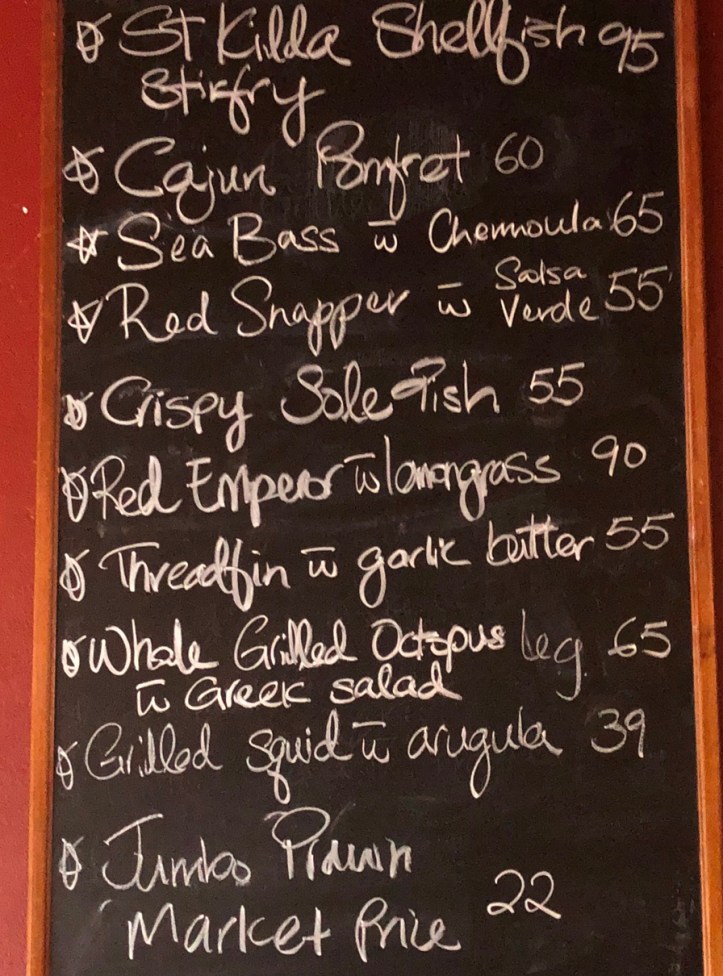 St Kilda Shellfish 95
Stirfry
Cajun Pomfret 60
Sea Bass w̅ Chermoula 65
Red Snapper w̅ Salsa Verde 55
Crispy Sole Fish 55
Red Emperor w̅ lemongrass 90
Threadfin w̅ garlic butter 55
Whole Grilled Octopus leg 65
w̅ Greek salad
Grilled squid w̅ arugula 39
Jumbo Prawn
Market Price 22